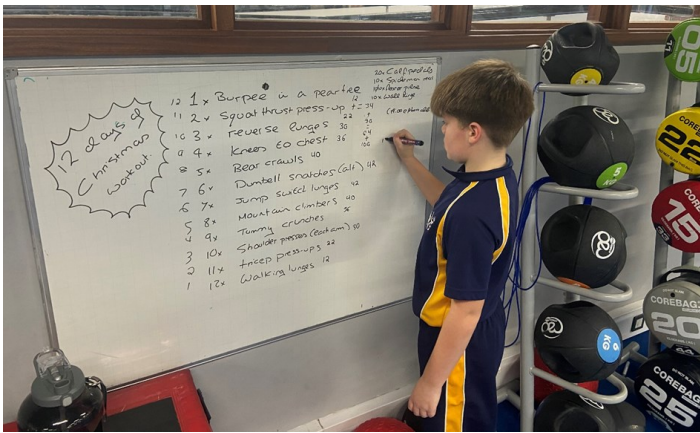 12 days of
Christmas
workout.
12 1x Burpee in a peartree 12
11 2x Squat thrust press-up 22
10 3x reverse lunges 30
9 4x knees to chest 36
8 5x Bear crawls 40
7 6x Dumbell snatches (alt) 42
6 7x Jump switch lunges 42
5 8x Mountain climbers 40
4 9x Tummy crunches 36
3 10x Shoulder presses (each arm) 30
2 11x tricep press-ups 22
1 12x Walking lunges 12
20x Calf pedals
10x Spiderman
10x
10x Walk lunge
+ = 34
+
30
64
+
5
KG
CORE
15
COREBAG
20
COREBAG
25
05